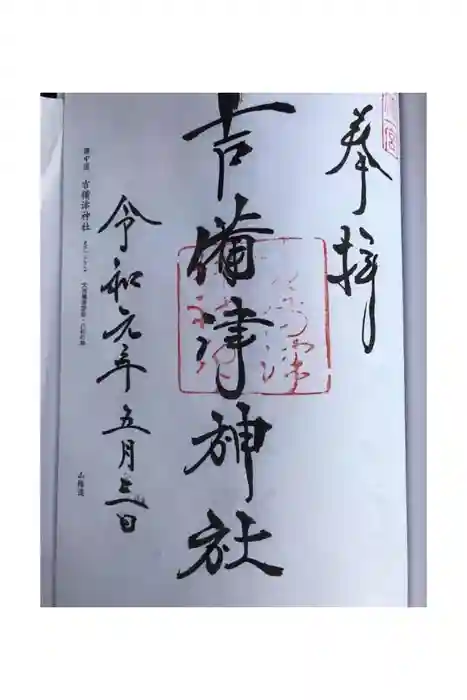 奉拝
吉備津神社
令和元年五月三日
備中国 吉備津神社
山陽道